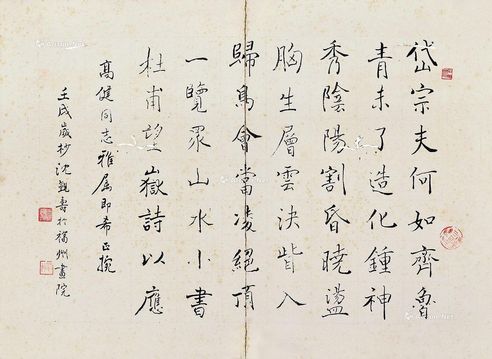 岱宗夫何如齊魯
青未了造化鍾神
秀陰陽割昏曉盪
胸生層雲決眥入
歸鳥會當凌絕頂
一覽眾山水小書
杜甫望嶽詩以應
高健同志雅屬即希正捥
壬戌歲杪沈覲壽於福州畫院